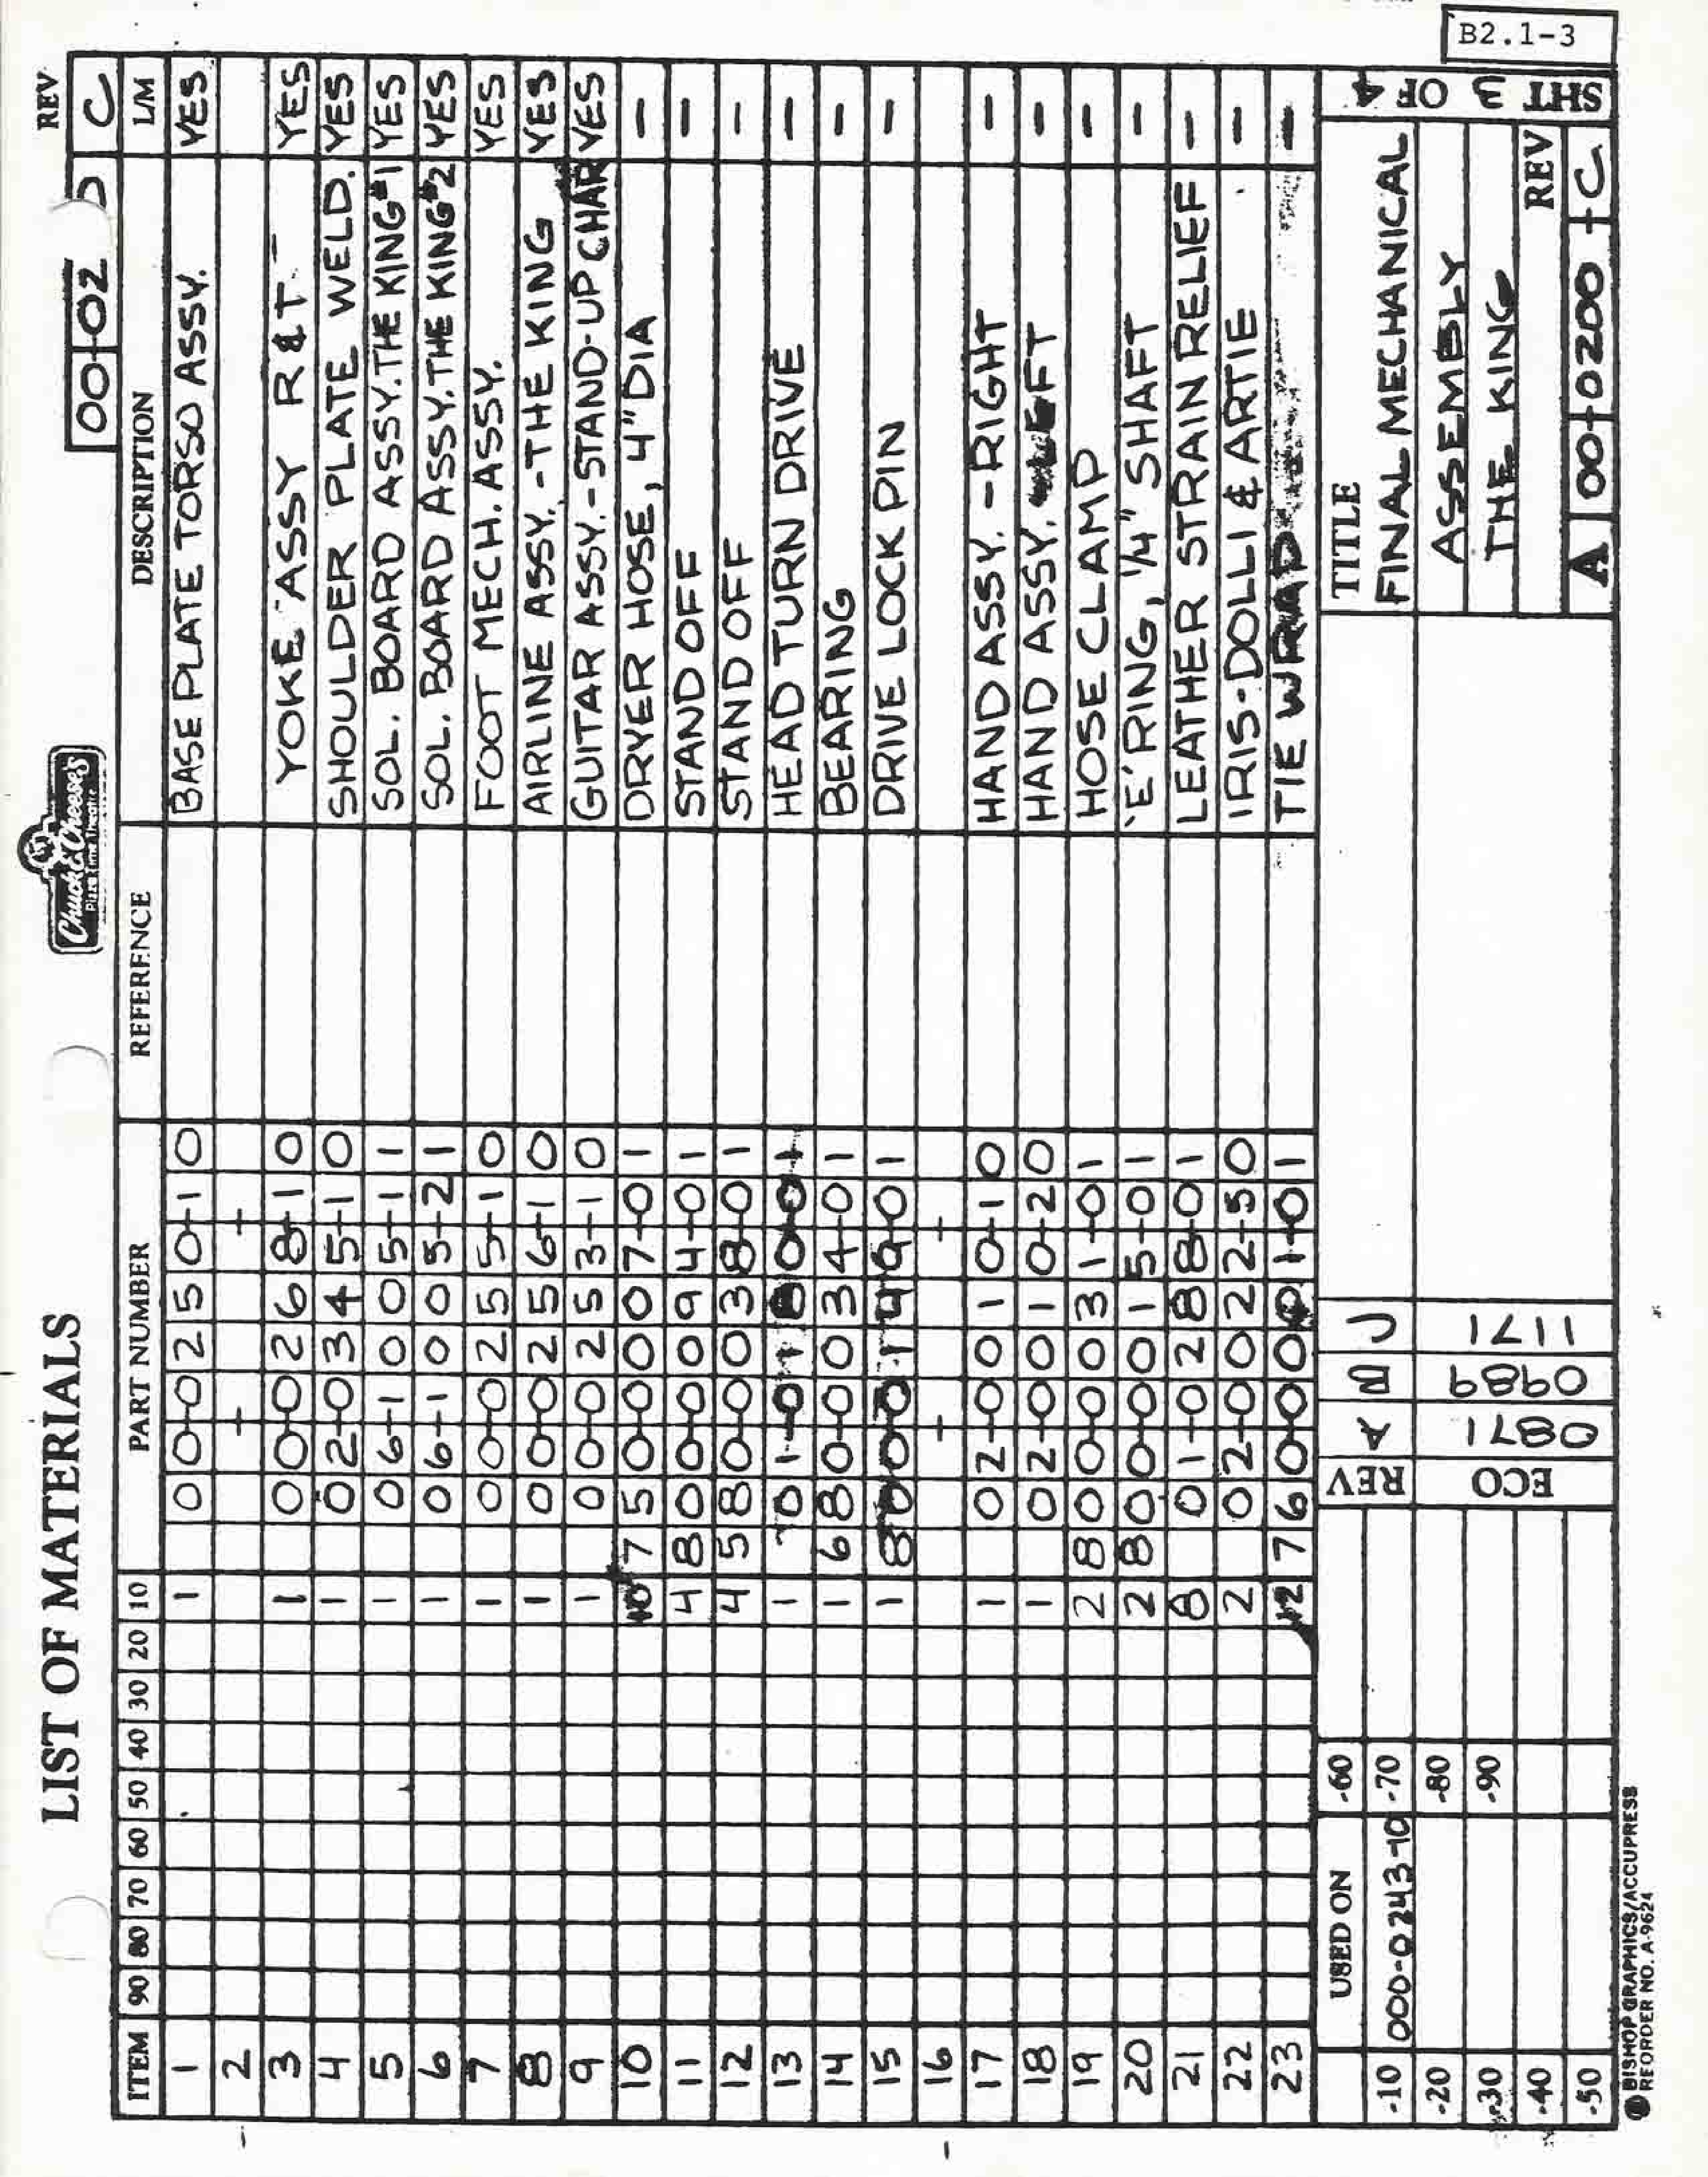 LIST OF MATERIALS
Chuck E. Cheese's
Pizza Time Theatre
REV
00-02 C
ITEM 90 80 70 60 50 40 30 20 10 PART NUMBER REFERENCE DESCRIPTION L/M
1 1 00-0250-10 BASE PLATE TORSO ASSY. YES
2
3 1 00-0268-10 YOKE ASSY R&T YES
4 1 02-0345-10 SHOULDER PLATE WELD. YES
5 1 06-1005-11 SOL. BOARD ASSY. THE KING #1 YES
6 1 06-1005-21 SOL. BOARD ASSY. THE KING #2 YES
7 1 00-0255-10 FOOT MECH. ASSY. YES
8 1 00-0256-10 AIRLINE ASSY. - THE KING YES
9 1 00-0253-10 GUITAR ASSY. - STAND-UP CHAR YES
10 750-0007-01 DRYER HOSE, 4" DIA -
11 4 800-0094-01 STAND OFF -
12 4 580-0038-01 STAND OFF -
13 1 HEAD TURN DRIVE -
14 1 680-0034-01 BEARING -
15 1 DRIVE LOCK PIN -
16
17 1 02-0010-10 HAND ASSY. - RIGHT -
18 1 02-0010-20 HAND ASSY. LEFT -
19 2 800-0031-01 HOSE CLAMP -
20 2 800-0015-01 'E' RING, 1/4" SHAFT -
21 8 01-0288-01 LEATHER STRAIN RELIEF -
22 2 02-0022-50 IRIS - DOLLI & ARTIE -
23 12 760-0001-01 TIE WRAP -
USED ON
-10 000-0243-10 -60
-20 -70
-30 -80
-40 -90
-50
REV A B C
ECO 0871 0989 1171
TITLE
FINAL MECHANICAL
ASSEMBLY
THE KING
REV
A 00-0200 C
SHT 3 OF 4
B2.1-3
BISHOP GRAPHICS/ACCUPRESS
REORDER NO. A-9624